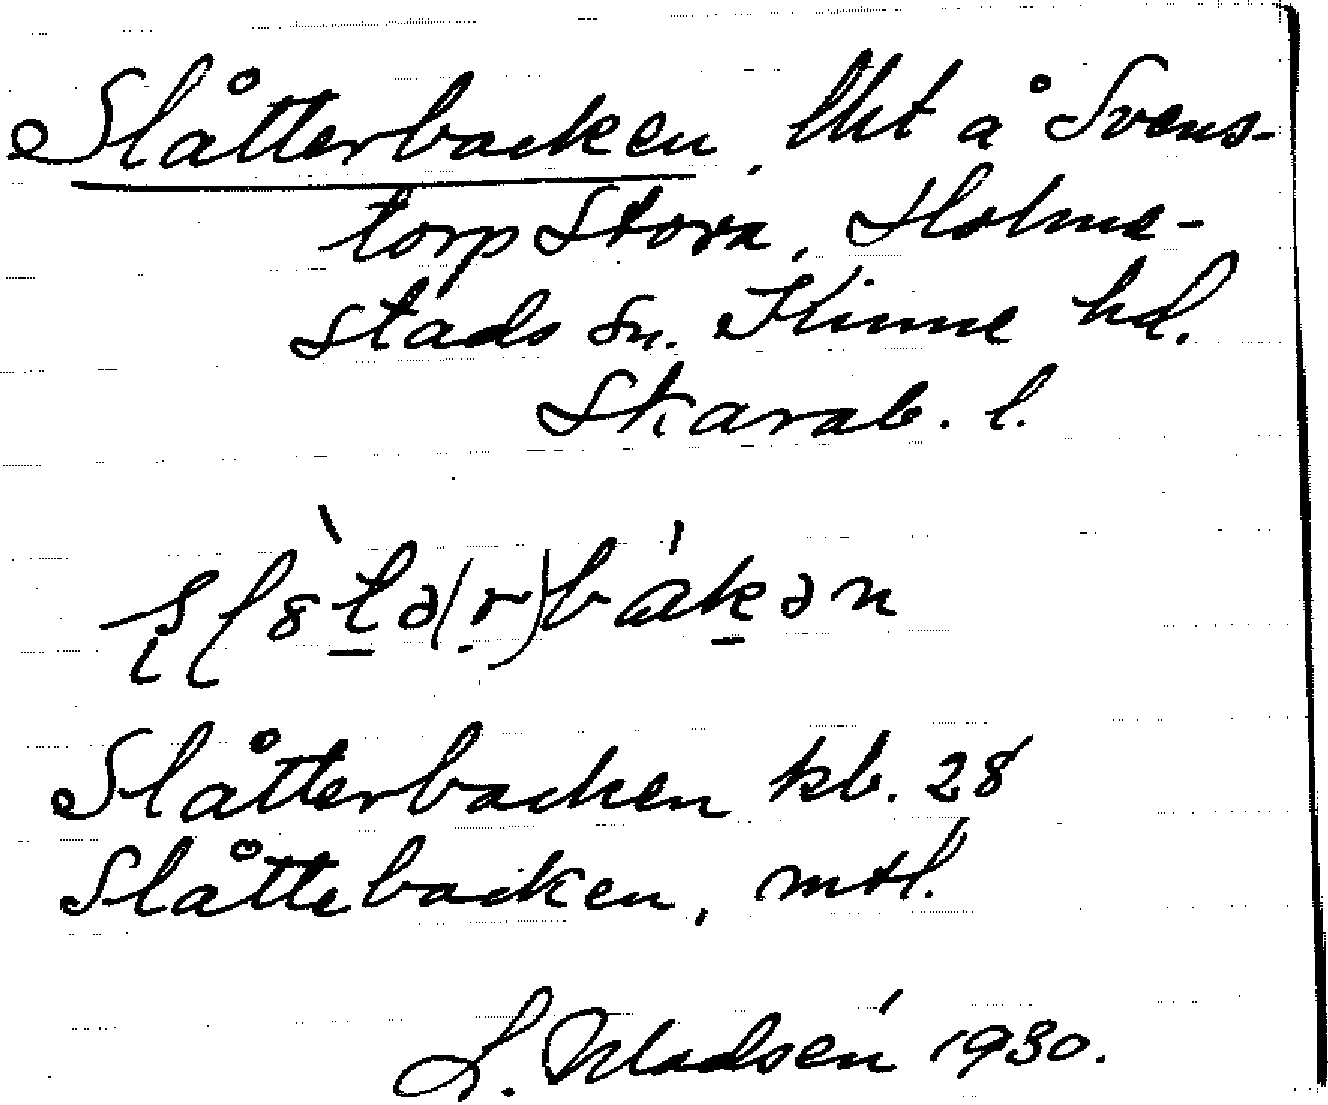 Slåtterbacken, lht å Svens-
torp Stora, Holme-
stads sn. Kinne hd.
Skarab. l.
Slåtterbacken kb. 28
Slåttebacken, mtl.
1930.